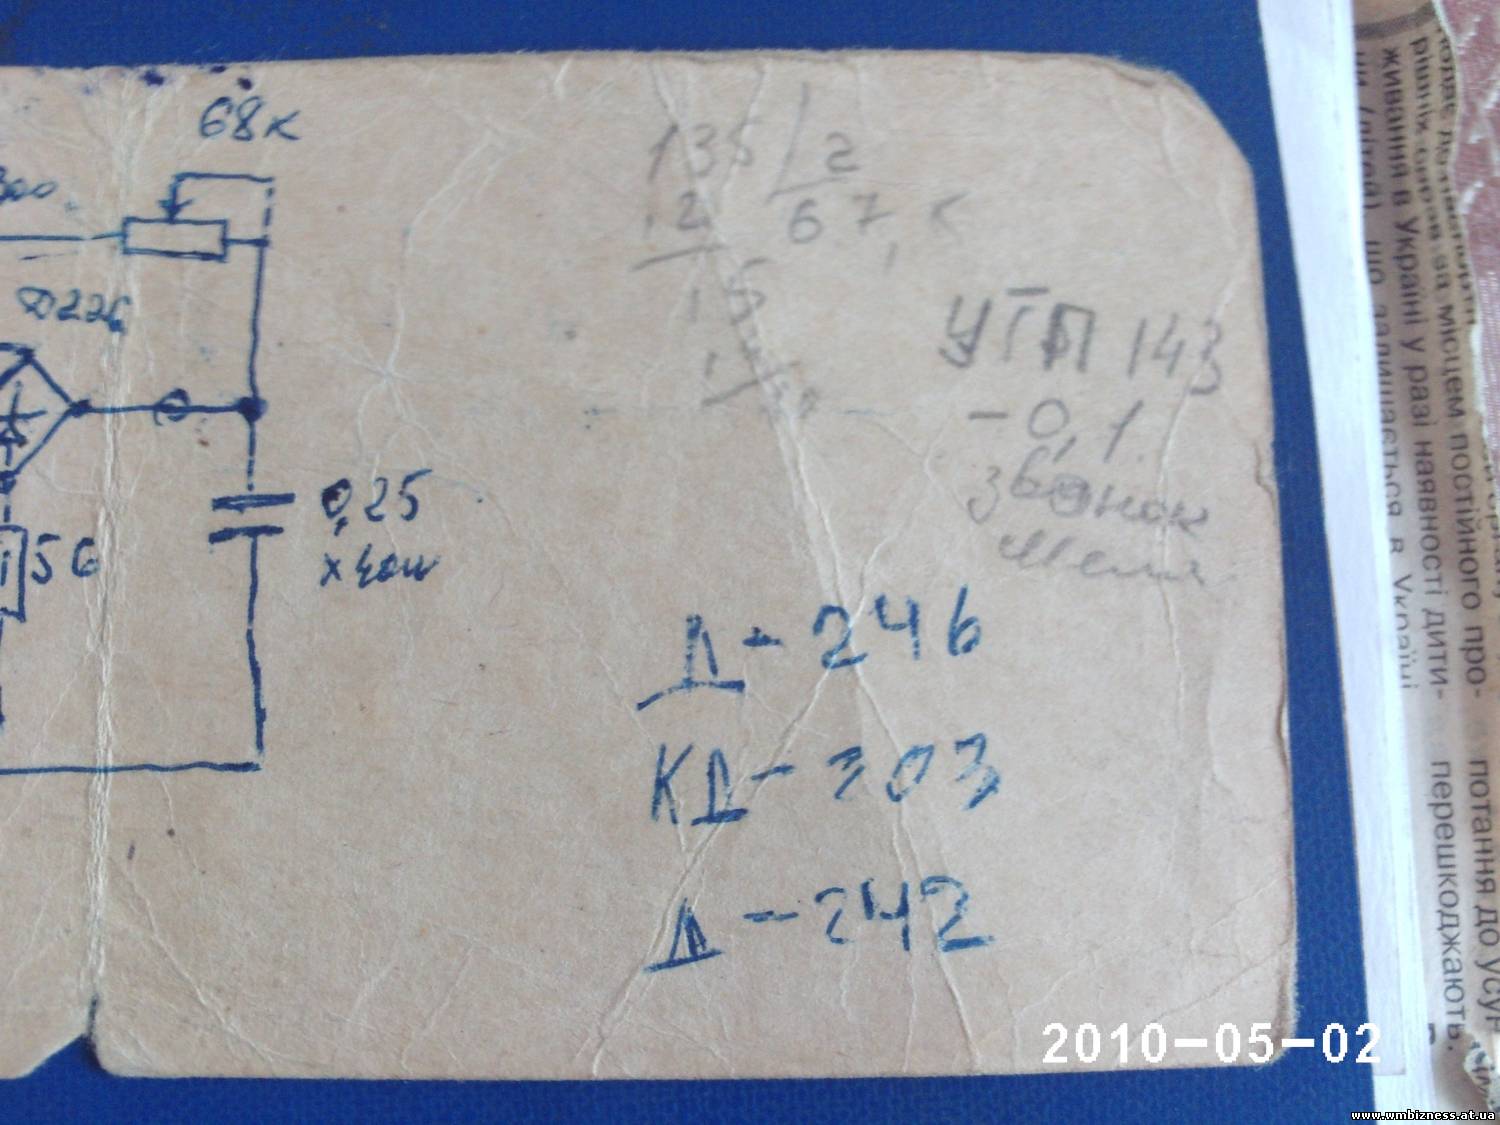 68к
300
Д226
0,25
х 400
56
135 2
12 67,5
15
УТП 143
-0,1
звонок
Д-246
КД-203
Д-242
рівні
живання в Україні у разі наявності дити-
що залишається в Україні
за місцем постійного про-
потання до усун
перешкоджають.
2010-05-02
www.wmbizness.at.ua